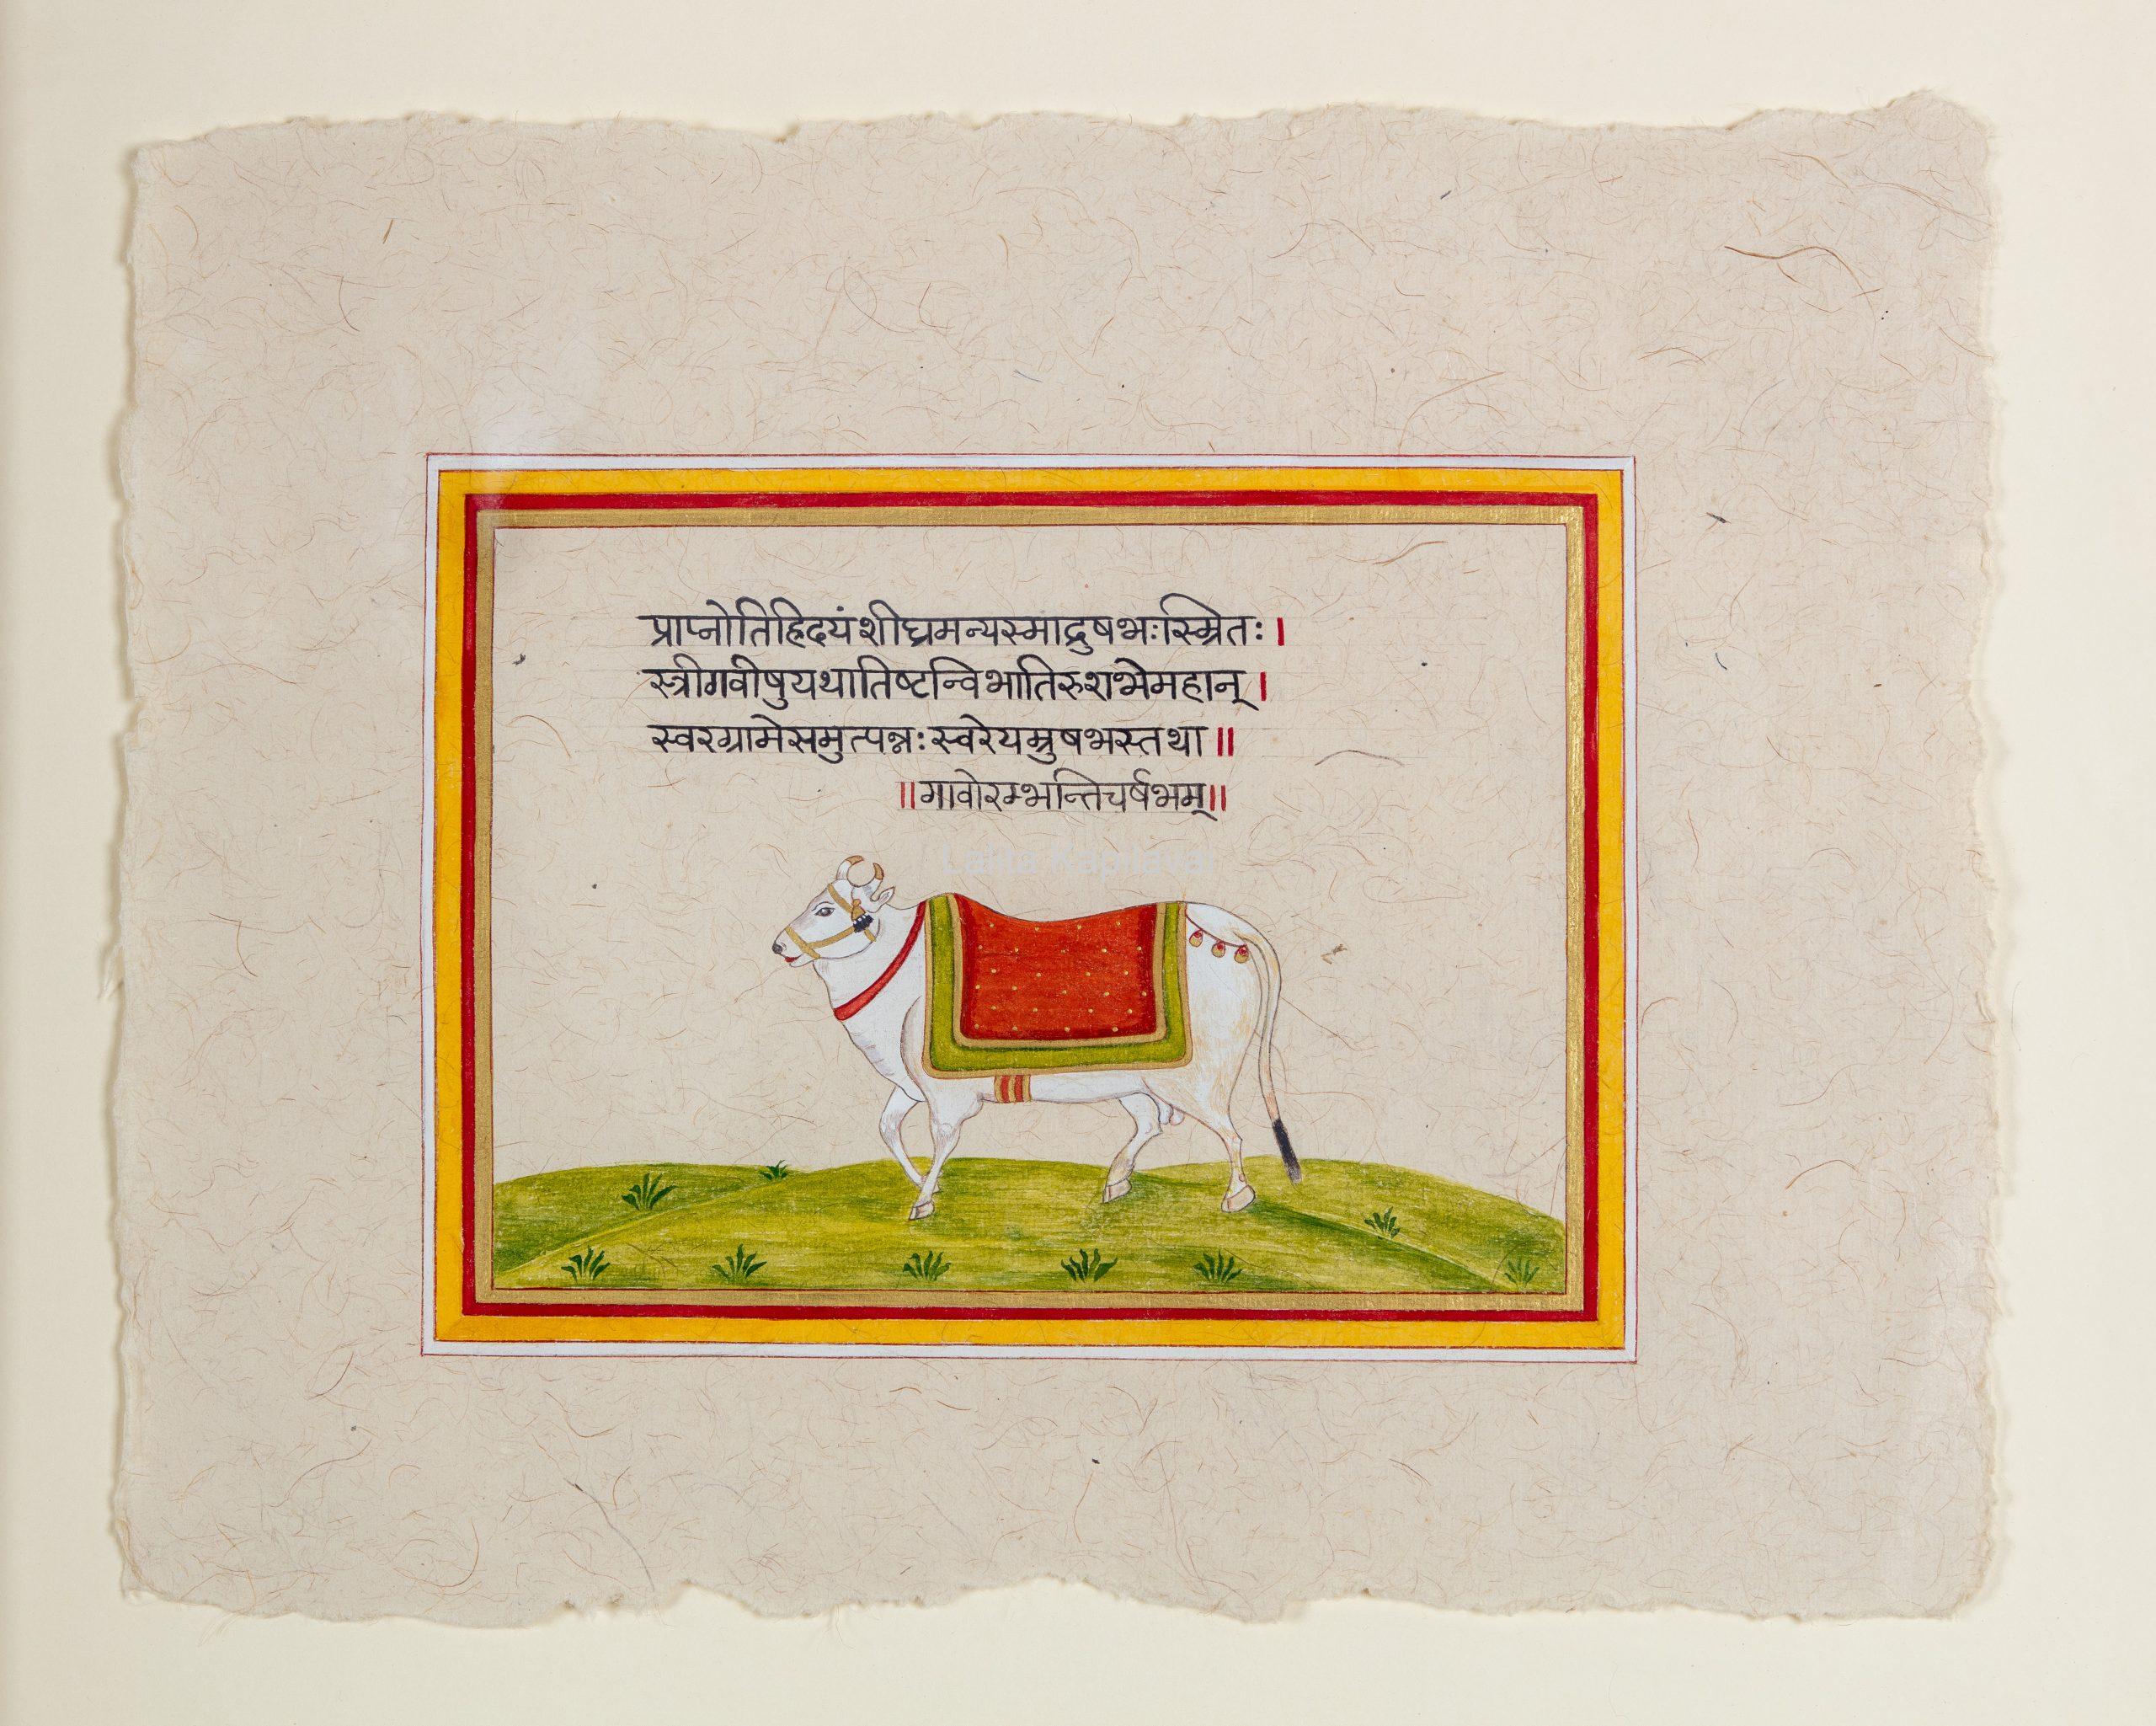 प्राप्नोतिह्रिदयंशीघ्रमन्यस्माद्रुषभःस्म्रितः।
स्त्रीगवीषुयथातिष्टन्विभातिरुशभेमहान्।
स्वरग्रामेसमुत्पन्नःस्वरेयम्रुषभस्तथा॥
॥गावोरम्भन्तिचर्षभम्॥